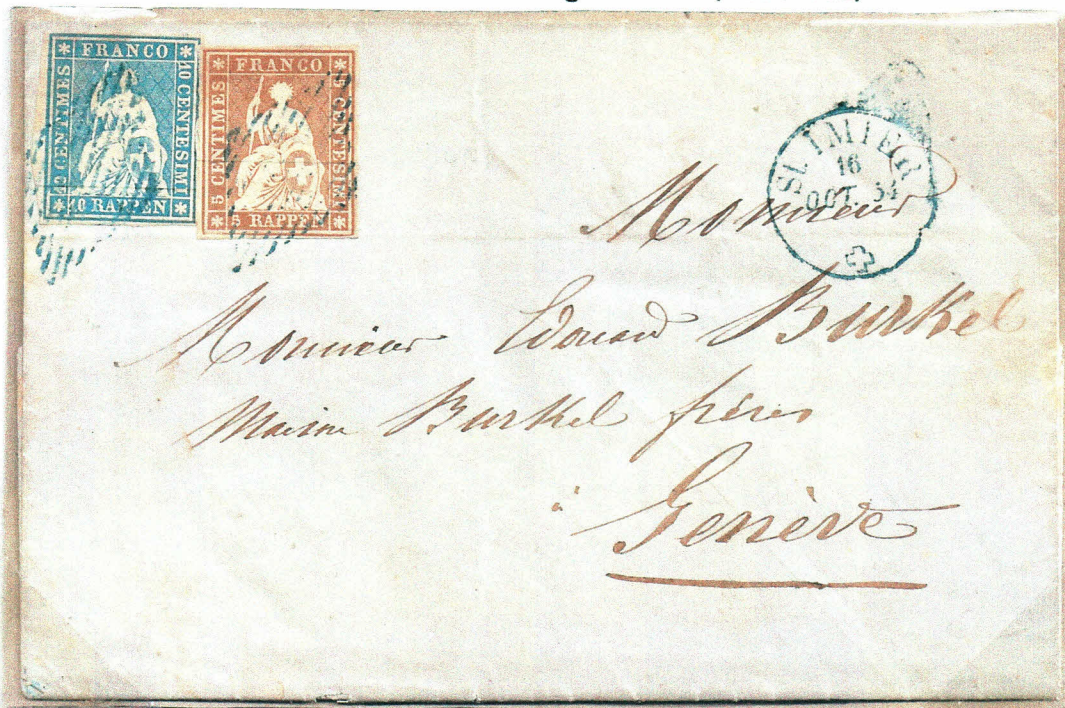 FRANCO
10 CENTIMES
10 CENTESIMI
10 RAPPEN
FRANCO
5 CENTIMES
5 CENTESIMI
5 RAPPEN
St. IMIER
16
OCT. 54
Monsieur
Monsieur Edouard Burkel
Maison Burkel frères
à
Genève